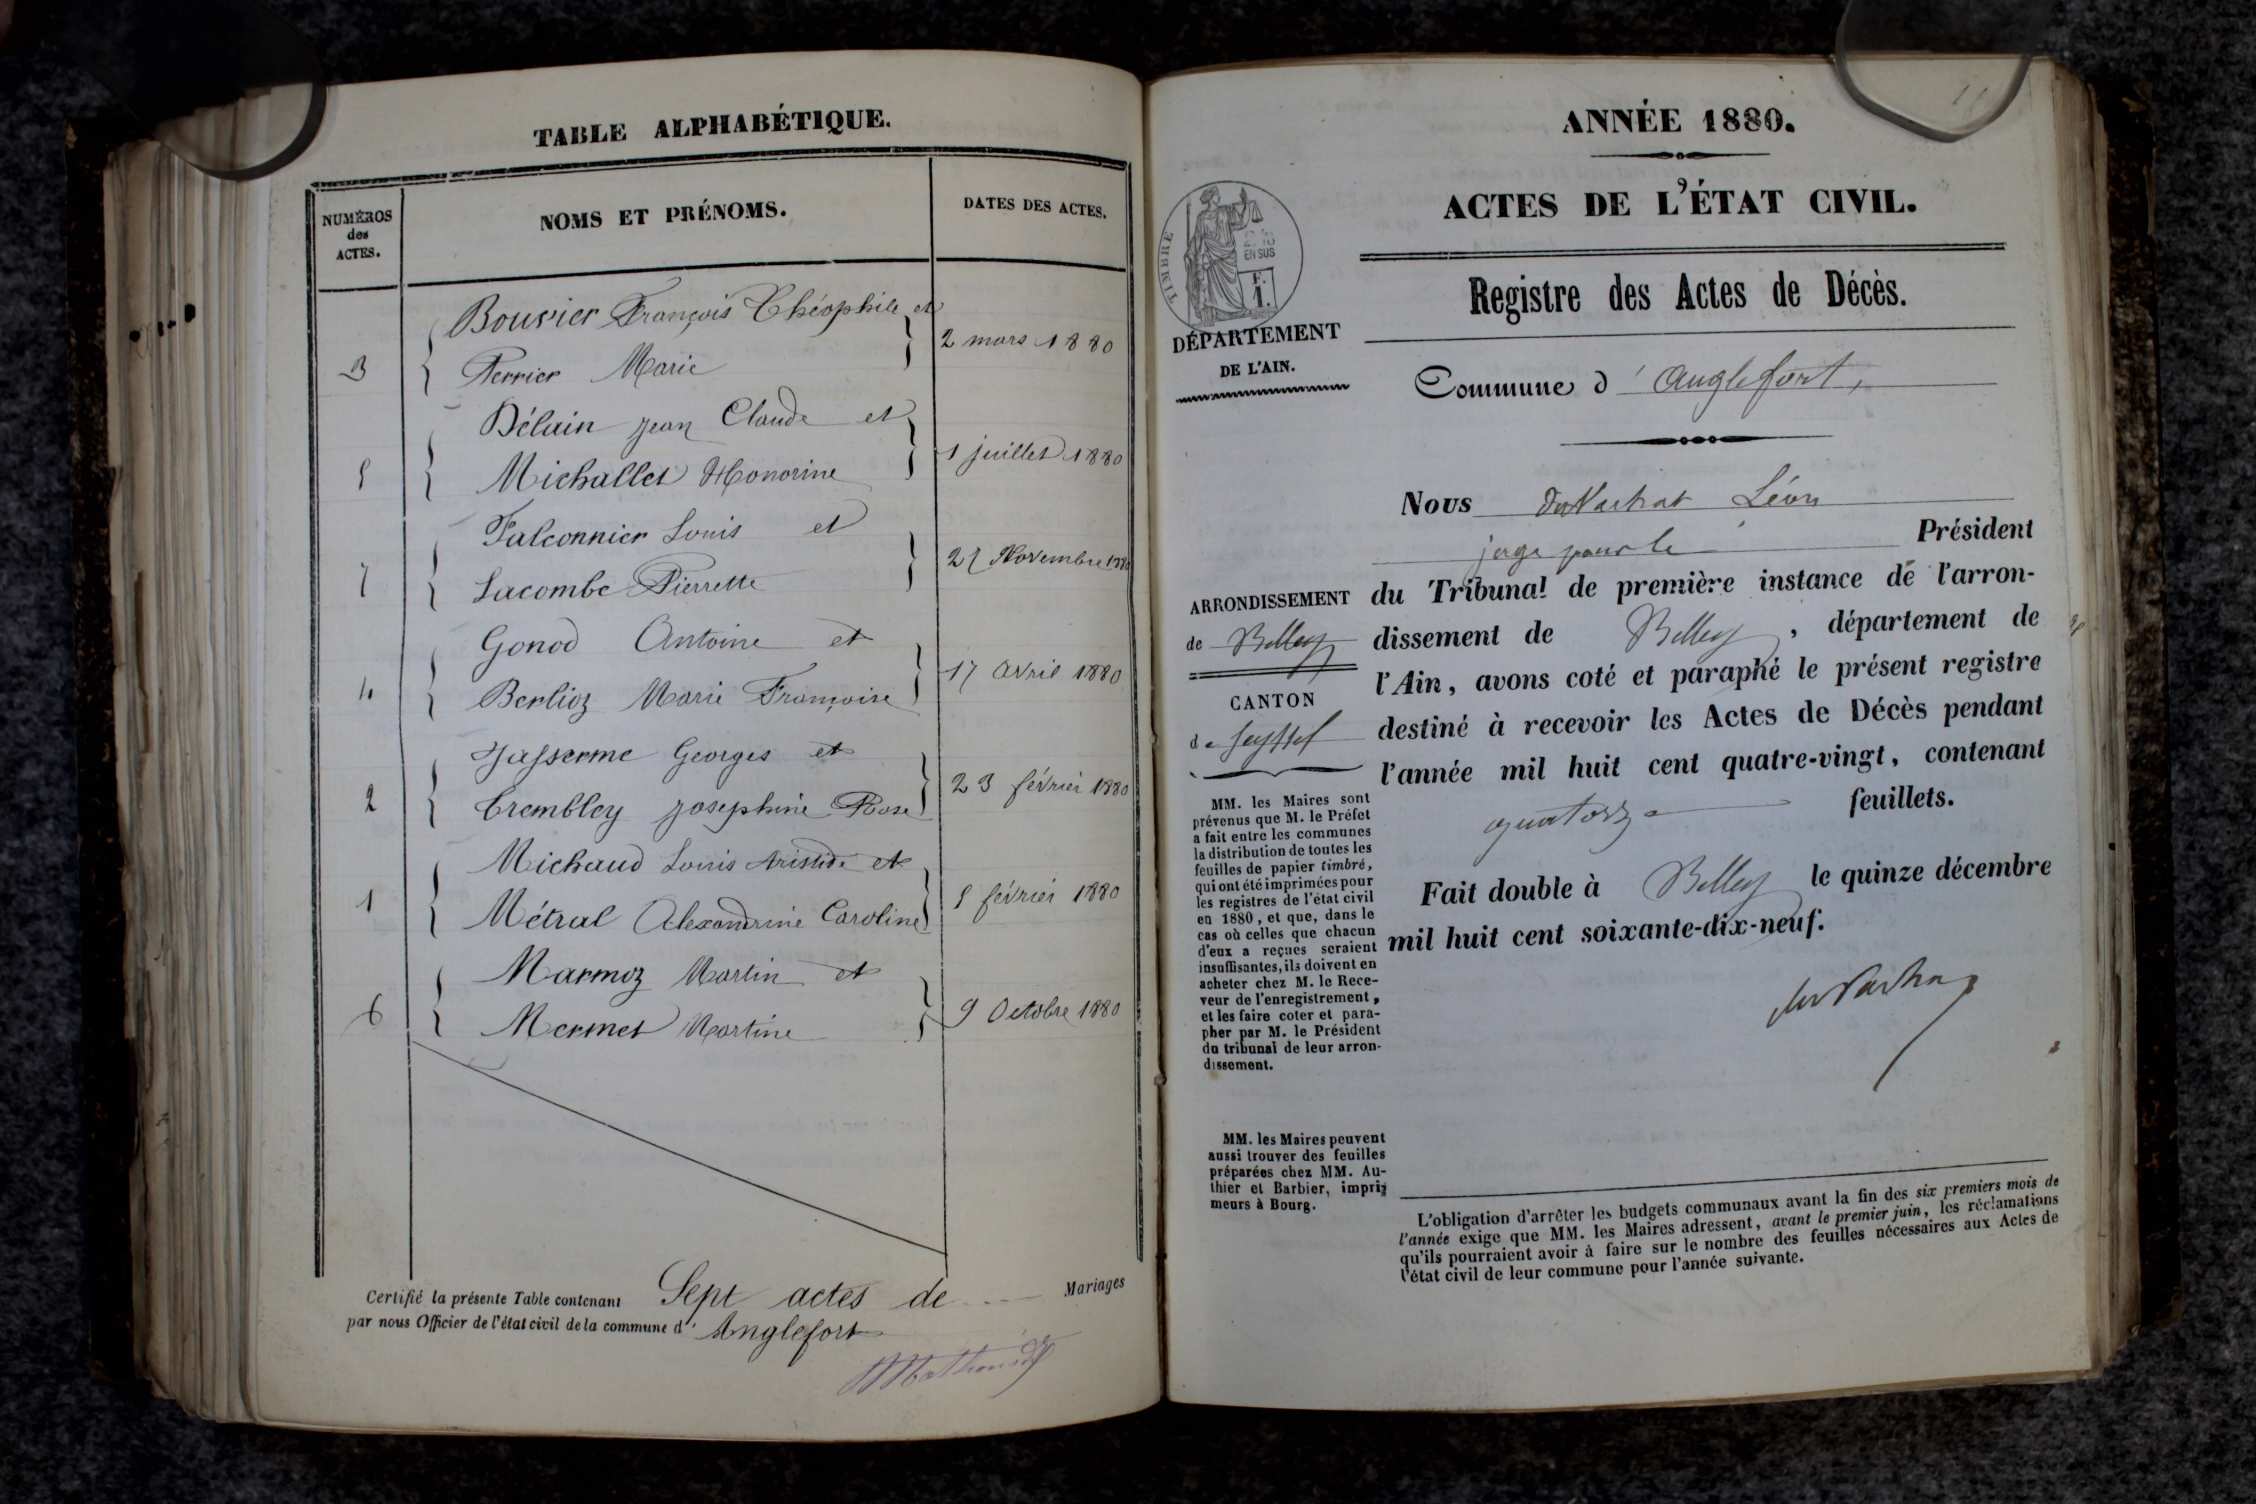 TABLE ALPHABÉTIQUE.
NUMÉROS
des
ACTES.
NOMS ET PRÉNOMS.
DATES DES ACTES.
Bouvier François Théophile et
3 Perrier Marie 2 mars 1880
Délain Jean Claude et
5 Michallet Honorine 1 juillet 1880
Falconnier Louis et
7 Lacombe Pierrette 27 Novembre 1880
Gonod Antoine et
4 Berlioz Marie Françoise 17 Avril 1880
Jasserme Georges et
2 Trembley Joséphine Rose 23 février 1880
Michaud Louis Aristide et
1 Métral Alexandrine Caroline 5 février 1880
Marmoz Martin et
6 Mermet Martine 9 Octobre 1880
Certifié la présente Table contenant Sept actes de Mariages
par nous Officier de l'état civil de la commune d' Anglefort
ANNÉE 1880.
ACTES DE L'ÉTAT CIVIL.
TIMBRE
EN SUS
F.
1.
Registre des Actes de Décès.
DÉPARTEMENT
DE L'AIN.
Commune d' Anglefort,
Nous Léon
juge pour le Président
du Tribunal de première instance de l'arron-
dissement de Belley, département de
l'Ain, avons coté et paraphé le présent registre
destiné à recevoir les Actes de Décès pendant
l'année mil huit cent quatre-vingt, contenant
quatorze feuillets.
Fait double à Belley le quinze décembre
mil huit cent soixante-dix-neuf.
ARRONDISSEMENT
de Belley
CANTON
de Seyssel
MM. les Maires sont
prévenus que M. le Préfet
a fait entre les communes
la distribution de toutes les
feuilles de papier timbré,
qui ont été imprimées pour
les registres de l'état civil
en 1880, et que, dans le
cas où celles que chacun
d'eux a reçues seraient
insuffisantes, ils doivent en
acheter chez M. le Rece-
veur de l'enregistrement,
et les faire coter et para-
pher par M. le Président
du tribunal de leur arron-
dissement.
MM. les Maires peuvent
aussi trouver des feuilles
préparées chez MM. Au-
thier et Barbier, impri-
meurs à Bourg.
L'obligation d'arrêter les budgets communaux avant la fin des six premiers mois de
l'année exige que MM. les Maires adressent, avant le premier juin, les réclamations
qu'ils pourraient avoir à faire sur le nombre des feuilles nécessaires aux Actes de
l'état civil de leur commune pour l'année suivante.